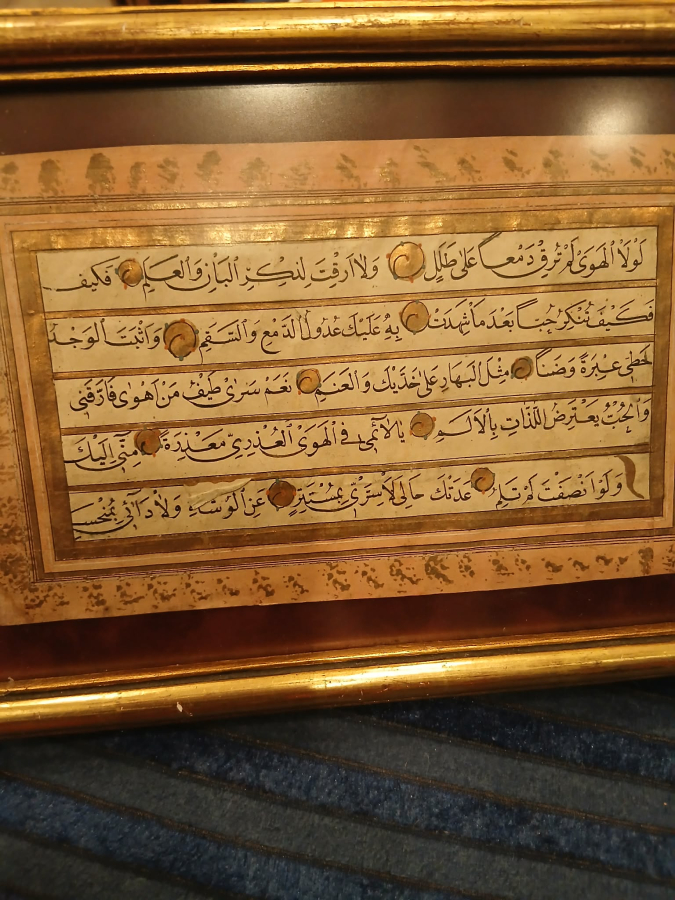 لَوْلَا الْهَوَى لَمْ تُرِقْ دَمْعًا عَلَى طَلَلٍ وَلَا أَرِقْتَ لِذِكْرِ الْبَانِ وَالْعَلَمِ فَكَيْفَ
فَكَيْفَ تُنْكِرُ حُبًّا بَعْدَ مَا شَهِدَتْ بِهِ عَلَيْكَ عُدُولُ الدَّمْعِ وَالسَّقَمِ وَأَثْبَتَ الْوَجْدُ
خَطَّيْ عَبْرَةً وَضَنًا مِثْلَ الْبَهَارِ عَلَى خَدَّيْكَ وَالْعَنَمِ نَعَمْ سَرَى طَيْفُ مَنْ أَهْوَى فَأَرَّقَنِي
وَالْحُبُّ يَعْتَرِضُ اللَّذَّاتِ بِالْأَلَمِ يَا لَائِمِي فِي الْهَوَى الْعُذْرِيِّ مَعْذِرَةً مِنِّي إِلَيْكَ
وَلَوْ أَنْصَفْتَ لَمْ تَلُمِ عَدَتْكَ حَالِي لَا سِرِّي بِمُسْتَتِرٍ عَنِ الْوُشَاةِ وَلَا دَائِي بِمُنْحَسِمِ